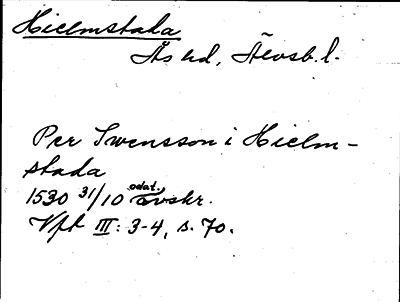 Hielmstada
Ås hd, Älvsb. l.
Per Swensson i Hielm-
stada
1530 31/10 odat. avskr.
Vft III: 3-4, s. 70.